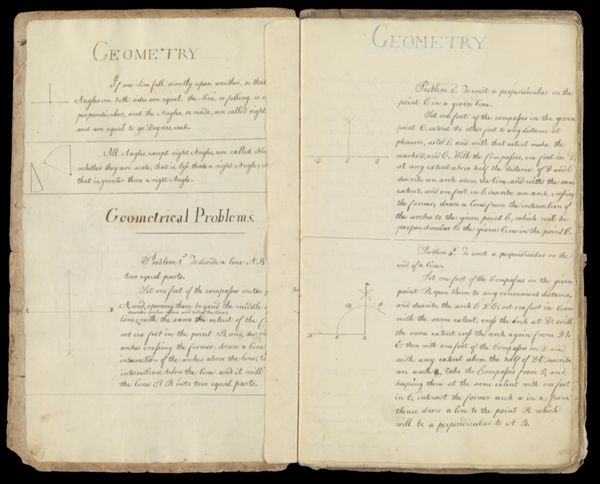 GEOMETRY
If one Line fall directly upon another, so that
Angles on both sides are equal, the Line, so falling, is
perpendicular, and the Angles, so made, are called right
and are equal to 90 Degrees, each.
All Angles, except right Angles, are called
whether they are acute, that is, less than a right Angle,
that is, greater than a right Angle.
Geometrical Problems
Problem 1st To divide a line A B
two equal parts.
Set one foot of the compasses on the
A, and, opening them beyond the middle
line, with the same the extent of the
set one foot in the point B, and,
arches crossing the former: draw a line
intersection of the arches above the line, to
intersections below the line, and it will
the line A B into two equal parts.
GEOMETRY
Problem 2. To erect a perpendicular on the
point C in a given line.
Set one foot of the compasses in the given
point C, extend the other foot to any distance at
pleasure, as to D, and with that extent make the
marks D, and E. With the Compasses, one foot in D,
at any extent above half the distance of D and E
describe an arch above the line, and with the same
extent, and one foot in E describe an arch, crossing
the former; draw a line from the intersection of
the arches to the given point C, which will be
perpendicular to the given line in the point C.
Problem 3d To erect a perpendicular on the
end of a line.
Set one foot of the Compasses in the given
point B, open them to any convenient distance,
and describe the arch C D E; set one foot in C, and
with the same extent, cross the arch at D: with
the same extent cross the arch again from D to
E: then with one foot of the Compasses in D and
with any extent above the half of D E, describe
an arch a; take the Compasses from D, and,
keeping them at the same extent with one foot
in E, intersect the former arch a in a; from
thence draw a line to the point B which
will be a perpendicular to A B.